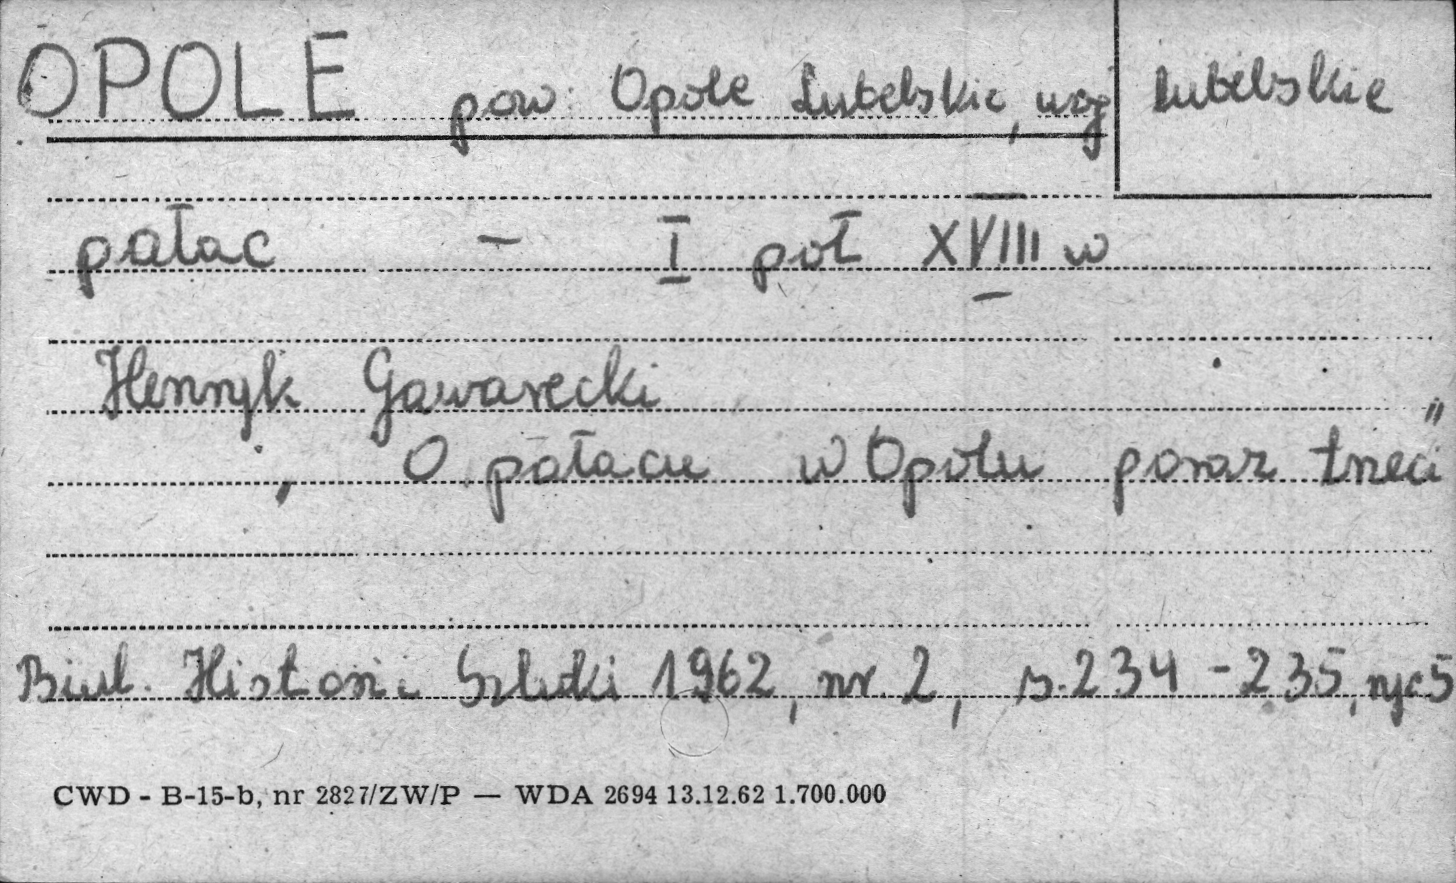 OPOLE pow. Opole Lubelskie, woj lubelskie
pałac - I poł XVIII w
Henryk Gawarecki
„O pałacu w Opolu poraz trzeci"
Biul. Historii Sztuki 1962, nr. 2, s. 234-235, ryc 5
CWD - B-15-b, nr 2827/ZW/P — WDA 2694 13.12.62 1.700.000